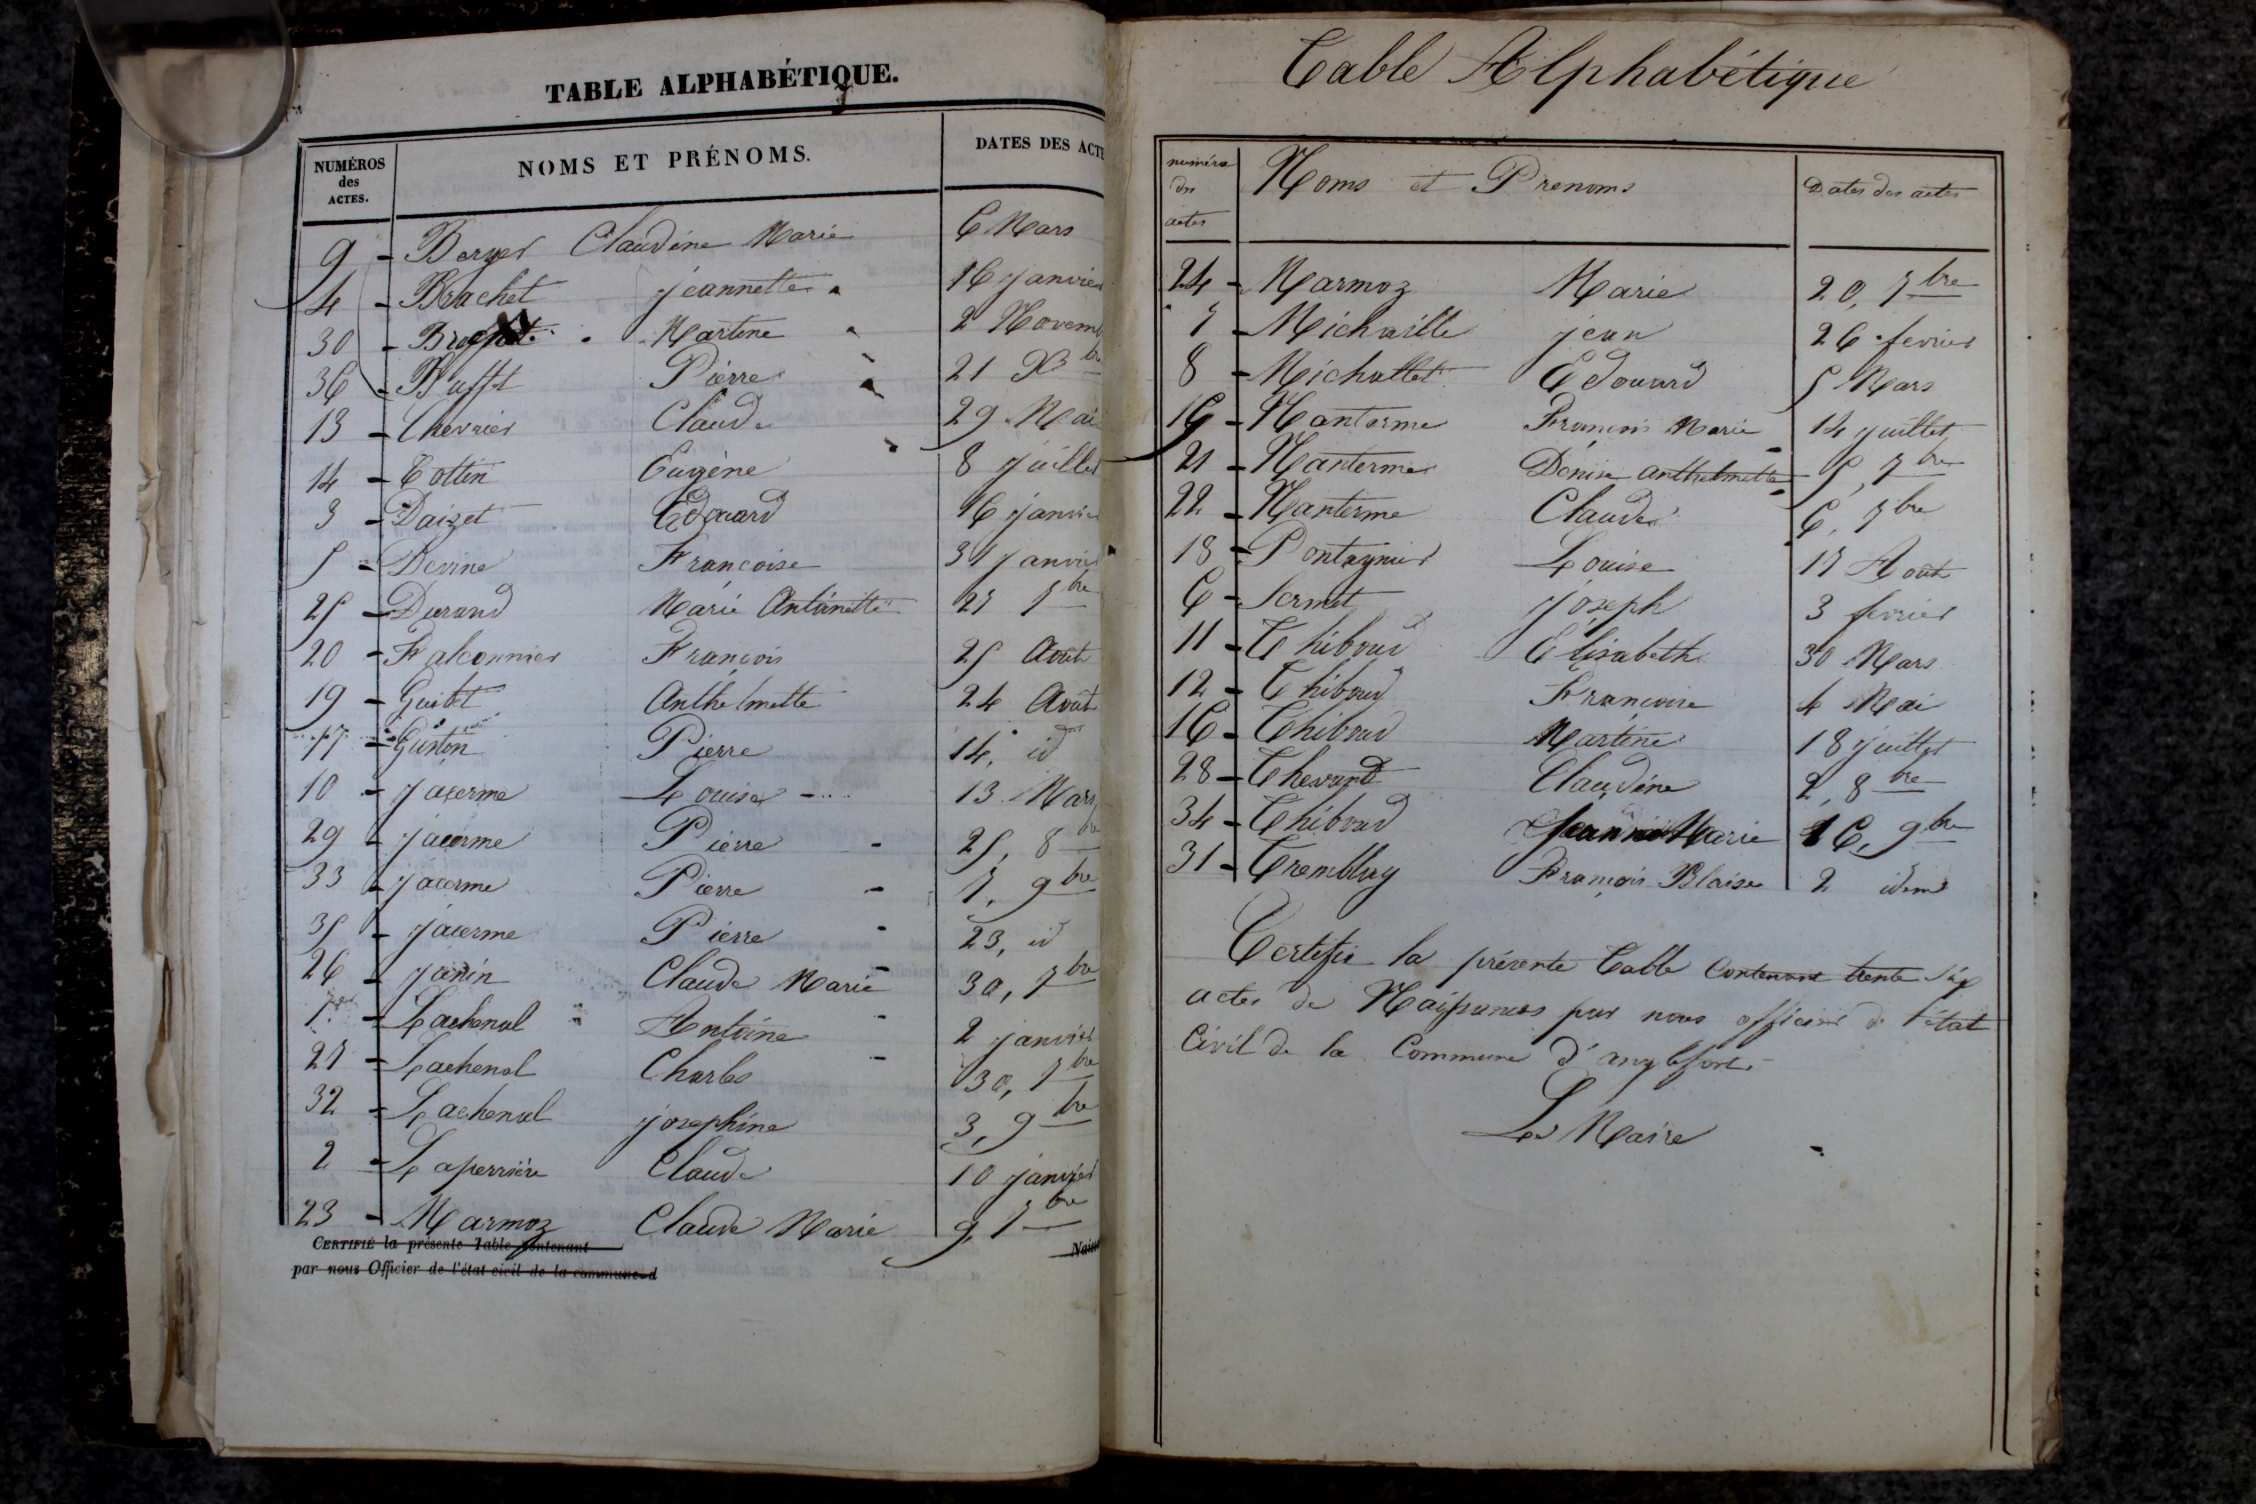 TABLE ALPHABÉTIQUE.
NUMÉROS des ACTES. NOMS ET PRÉNOMS. DATES DES ACTE
9 - Berger Claudine Marie 6 Mars
4 - Brachet jeannette 16 janvier
30 - Martine 2 Novemb
36 - Buffet Pierre 21 Xbre
13 - Chevrier Claude 29 Mai
14 - Cottin Eugène 8 juillet
3 - Daizet Edouard 16 janvier
5 - Devine Francoise 31 janvier
25 - Durand Marie Antoinette 27 7bre
20 - Falconnier François 25 Août
19 - Guibet Anthelmette 24 Août
17 - Guiton Pierre 14, id
10 - jacerme Louise 13 Mars
29 - jacerme Pierre 25, 8bre
33 - jacerme Pierre 7, 9bre
35 - jacerme Pierre 23, id
26 - janin Claude Marie 30, 7bre
1er - Lachenal Antoine 2 janvier
27 - Lachenal Charles 30, 7bre
32 - Lachenal josephine 3, 9bre
2 - Laperrière Claude 10 janvier
23 - Marmoz Claude Marie 9, 7bre
CERTIFIÉ la présente Table contenant Naiss
par nous Officier de l'état civil de la commune d
Table Alphabétique
numéro des actes Noms et Prenoms Dates des actes
24 - Marmoz Marie 20, 7bre
7 - Michaille jean 26 fevrier
8 - Michallet Edouard 5 Mars
15 - Nanterme François Marie 14 juillet
21 - Nanterme Denise anthelmette 5, 7bre
22 - Nanterme Claude 6, 7bre
18 - Pontagnier Louise 17 Août
6 - Sermet joseph 3 fevrier
11 - Thiboud Elisabeth 30 Mars
12 - Thiboud Françoise 4 Mai
16 - Thiboud Martine 18 juillet
28 - Thevand Claudine 2, 8bre
34 - Thiboud Jeanne Marie 16, 9bre
31 - Tremblay François Blaise 2 idem
Certifié la présente Table Contenant trente six
actes de Naissances par nous officier de l'état
Civil de la Commune d'anglefort.
Le Maire